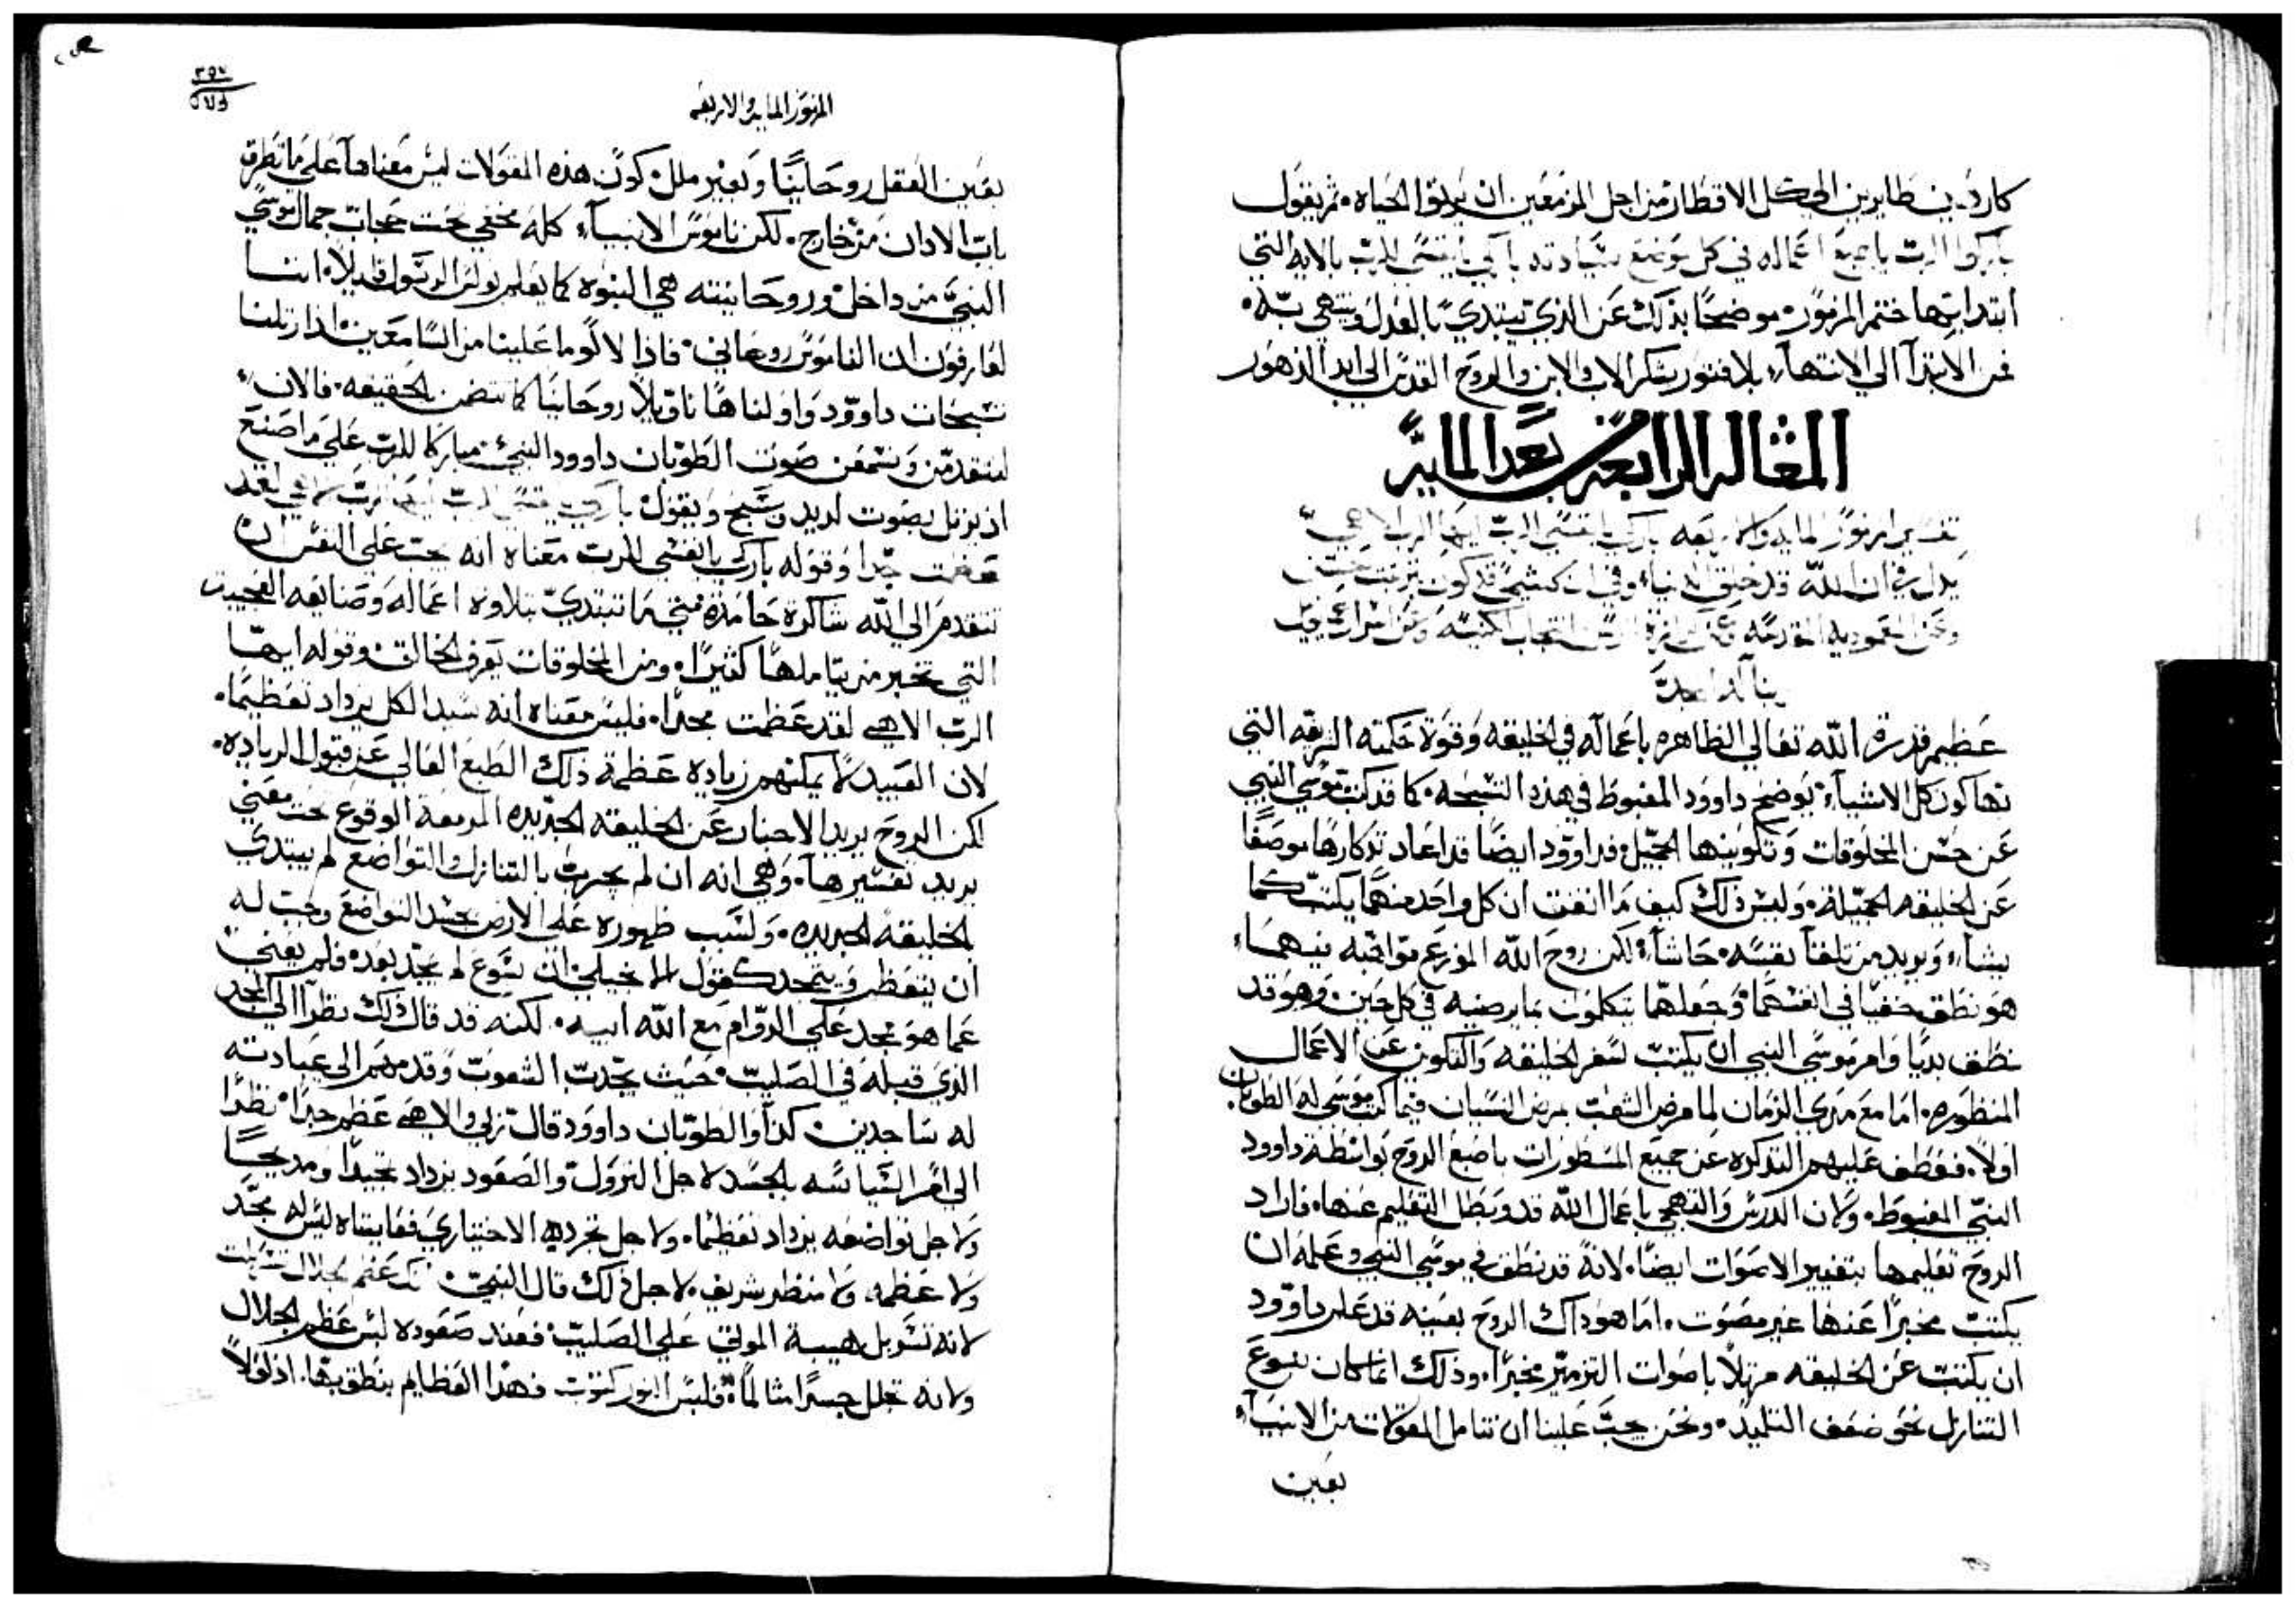 كارزين طايرين الي كل الاقطار من اجل المزمعين ان يرثوا الحياه. ثم يقول
باركوا الرب يا جميع اعماله في كل موضع سيادته باركي يا نفسي للرب بالايه التي
ابتدا بها ختم المزمور. موضحًا بذلك عن الذي يبتدي بالعدل وينتهي به.
فمن الابتدآ الي الانتهآء بلا فتور يشكر الاب والابن والروح القدس الي ابد الدهور
المقاله الرابعه بعد المايه
تفسير المزمور المايه والاربعه بارك يا نفسي الرب ايها الرب الاهي
يدل علي ان الله قد خلق الدنيا
وعن المعموديه المقدسه
عظيم قدرة الله تعالي الظاهره باعماله في الخليقه وقوة حكمته التي
بها كون كل الاشيآء يوضح داوود المغبوط في هذه التسبحه. كما قد كتب موسي النبي
عن حسن المخلوقات وتكوينها الجميل فداوود ايضًا قد اعاد تذكارها موصفًا
عن الخليقه الجميله. وليس ذلك كيف ما اتفق ان كل واحد منهما يكتب كما
يشاء ويريد من تلقآ نفسه. حاشا. لكن روح الله الموزع مواهبه فيهما
هو نطق خفيًا في انفسهما وجعلهما يتكلمون بما يرضيه في كل حين. وهو قد
نطق بديًا وامر موسي النبي ان يكتب سفر الخليقه والتكوين عن الاعمال
المنظوره. اما مع مدي الزمان لما مرض الشعب بمرض النسيان فيما كتب موسي له الطوبان
اولاً. فعطف عليهم التذكره عن جميع المسطورات باصبع الروح بواسطة داوود
النبي المغبوط. ولان الدرس والتهجي باعمال الله قد وبطل التعليم عنها. فاراد
الروح تعليمها بتغيير الاصوات ايضًا. لانه قد نطق في موسي النبي وعلمه ان
يكتب مخبرًا عنها غير مصوت. اما هو ذاك الروح بعينه قد علم داوود
ان يكتب عن الخليقه مرتلاً باصوات التزمير مخبرًا. وذلك انما كان بنوع
التنازل نحو ضعف التلميذ. ونحن يجب علينا ان نتامل المقولات من الانبيآء
بعين
المزمور المايه والاربعه
٣٥٧
بعين العقل روحانيًا وبغير ملل. كون هذه المقولات ليس معناها علي ما تطرق
باب الاذان من خارج. لكن ناموس الانبيآء كله مخفي تحت حجاب جمال موسي
النبي من داخل وروحانيته هي النبوه كما يعلم بولس الرسول قايلاً. اننا
لعارفون ان الناموس روحاني. فاذًا لا لومًا علينا من السامعين اذا رتلنا
تسبحات داوود واولناها تاويلاً روحانيًا كما تتضمن الحقيقه. فالان
لنتقدمن ونسمعن صوت الطوبان داوود النبي مباركًا للرب علي ما صنع
اذ يرتل بصوت لذيذ ويسبح ويقول باركي يا نفسي الرب ايها الرب الاهي لقد
عظمت جدًا وقوله باركي يا نفسي للرب معناه انه يحث علي النفس ان
تتقدم الي الله شاكرة حامدة متي ما تبتدي بتلاوة اعماله وصنايعه العجيبه
التي تخبر من يتاملها كثيرًا. ومن المخلوقات يعرف الخالق. وقوله ايها
الرب الاهي لقد عظمت مجدًا. فليس معناه انه سيد الكل يزداد تعظيمًا.
لان العبيد لا يمكنهم زيادة عظمة ذلك الطبع العالي عن قبول الزياده.
لكن الروح يريد الاخبار عن الخليقه الجديده المزمعة الوقوع تحت معني
يريد تفسيرها. وهي انه ان لم يجرب بالتنازل والتواضع لم يبتدي
بالخليقه الجديده. ولسبب ظهوره علي الارض بجسد التواضع وجب له
ان يتعظم ويتمجد كقول الانجيلي ان يسوع لم يمجد بعده فلم يعني
عما هو ممجد علي الدوام مع الله ابيه. لكنه قد قال ذلك نظرًا الي المجد
الذي قبله في الصليب. حيث يجذب الشعوب وقدمهم الي عبادته
له ساجدين كذا والطوبان داوود قال ربي والاهي عظم جدًا. نظرًا
الي امر السياسه بالجسد لاجل النزول والصعود يزداد تمجيدًا ومديحًا
ولاجل تواضعه يزداد تعظيمًا. ولاجل تجرده الاختياري فعايناه ليس له مجد
ولا عظمه ولا منظر شريف. لاجل ذلك قال النبي عظم الجلال تسربلت
لانه تسربل هيبة الموتي علي الصليب. فعند صعوده لبس عظم الجلال
ولانه تجلل جسدًا متالمًا. فلبس النور كثوب فهذا العظايم ينطق بها. اذ اولاً